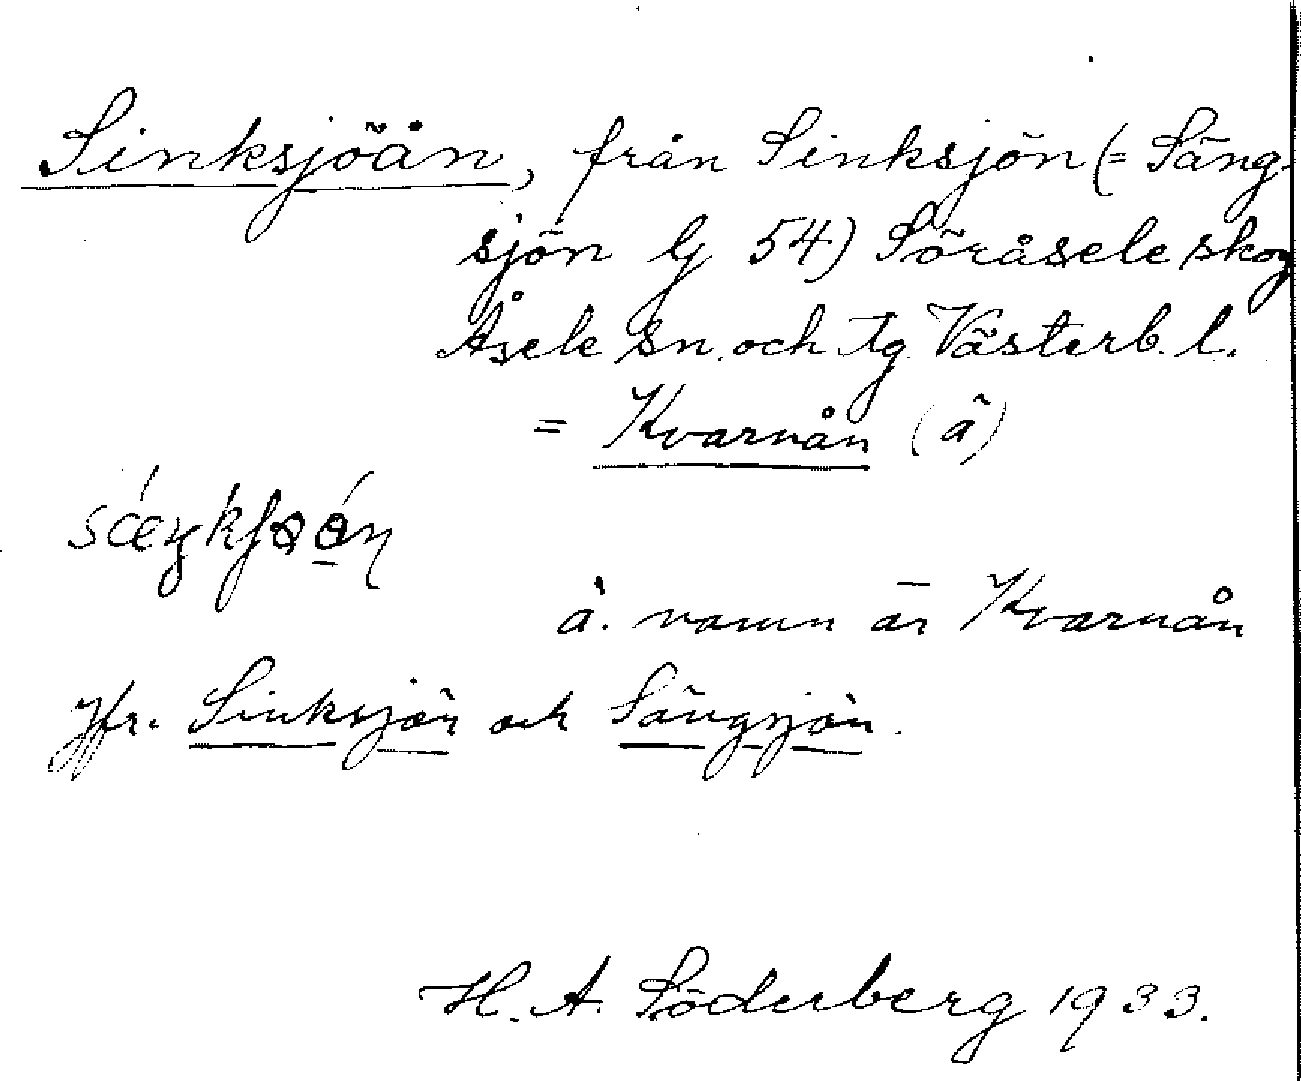 Sinksjöån, från Sinksjön (= Säng-
sjön lg 54) Söråsele skog
Åsele sn. och tg Västerb. l.
= Kvarnån (ä)
ä. namn är Kvarnån
Jfr. Sinksjön och Sängsjön.
H. A. Söderberg 1933.